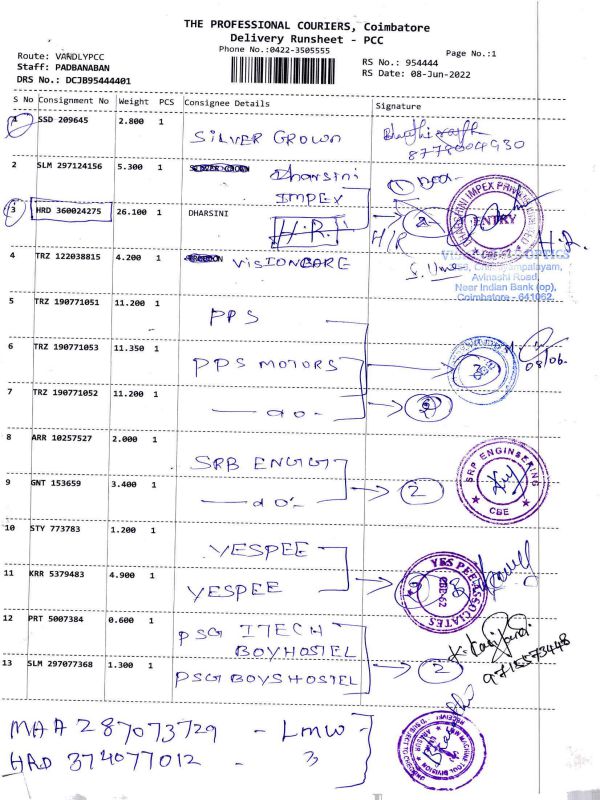 THE PROFESSIONAL COURIERS, Coimbatore
Delivery Runsheet - PCC
Phone No.:0422-3505555
Page No.:1
Route: VANDLYPCC
Staff: PADBANABAN
DRS No.: DCJB95444401
RS No.: 954444
RS Date: 08-Jun-2022
S No Consignment No Weight PCS Consignee Details Signature
1 SSD 209645 2.800 1 SILVER CROWN
8778004930
2 SLM 297124156 5.300 1 Dharsini
IMPEX
3 HRD 360024275 26.100 1 DHARSINI H.R. H/R 2 ENTRY
4 TRZ 122038815 4.200 1 VISIONCARE
Avinashi Road,
Near Indian Bank (op),
Coimbatore - 641062.
5 TRZ 190771051 11.200 1 PPS
6 TRZ 190771053 11.350 1 PPS MOTORS 3 08/06.
7 TRZ 190771052 11.200 1 — do —
8 ARR 10257527 2.000 1 SRB ENGG
SRP ENGINEERING
CBE
9 GNT 153659 3.400 1 — do — 2
10 STY 773783 1.200 1 YESPEE
YES PEE ASSOCIATES
CBE-62
11 KRR 5379483 4.900 1 YESPEE
12 PRT 5007384 0.600 1 PSG ITECH
BOYHOSTEL
9715573448
13 SLM 297077368 1.300 1 PSG BOYS HOSTEL 2
MAA 287073729 - LMW
HRD 374077012 - "